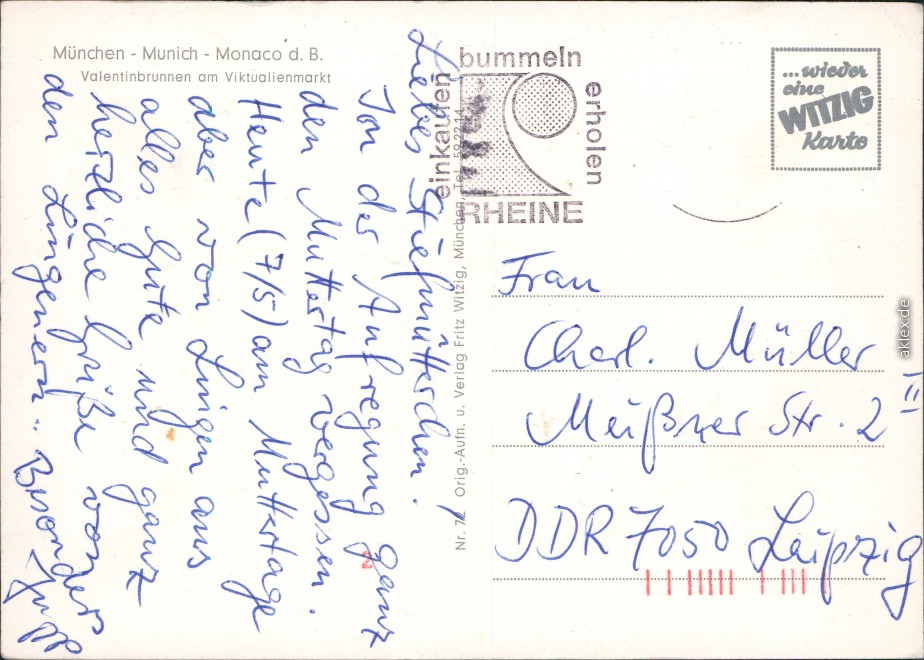 München - Munich - Monaco d. B.
Valentinbrunnen am Viktualienmarkt
Liebes Stiefmütterchen!
In der Aufregung ganz
den Muttertag vergessen.
Heute (7/5) am Muttertage
aber von Lingen aus
alles Gute und ganz
herzliche Grüße von
den Lingenern.. Besonders
Jupp
Nr. 72 Orig.-Aufn. u. Verlag Fritz Witzig, München, Tel. 59 22 14
einkaufen
bummeln
erholen
RHEINE
...wieder
eine
WITZIG
Karte
Frau
Charl. Müller
Meißner Str. 2 II
DDR 7050 Leipzig
aklex.de